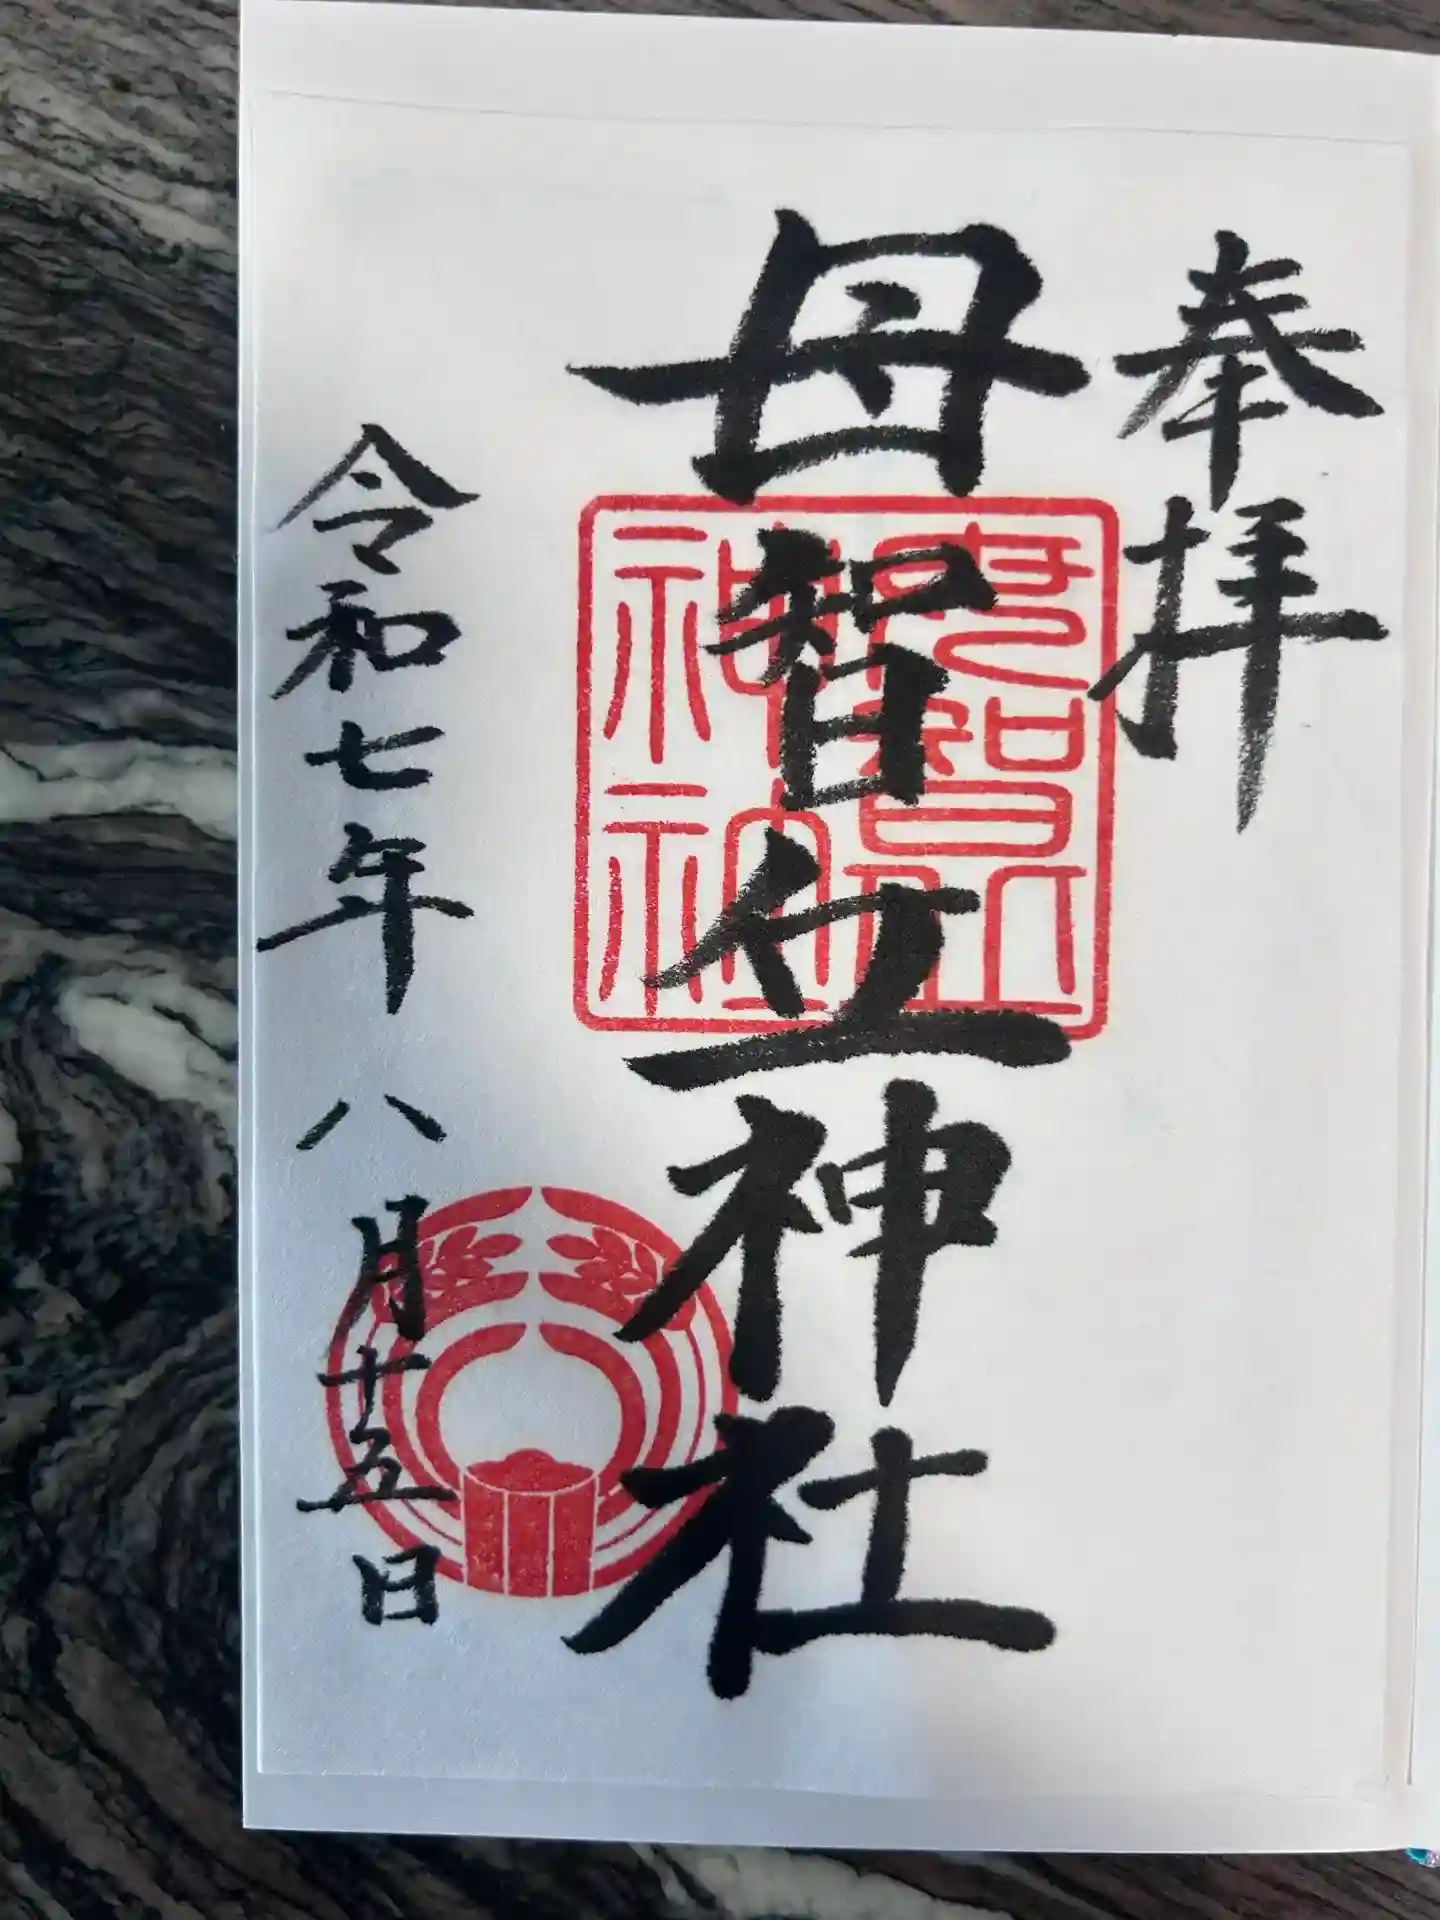 奉拝
母智丘神社
母智丘神社
令和七年八月十五日